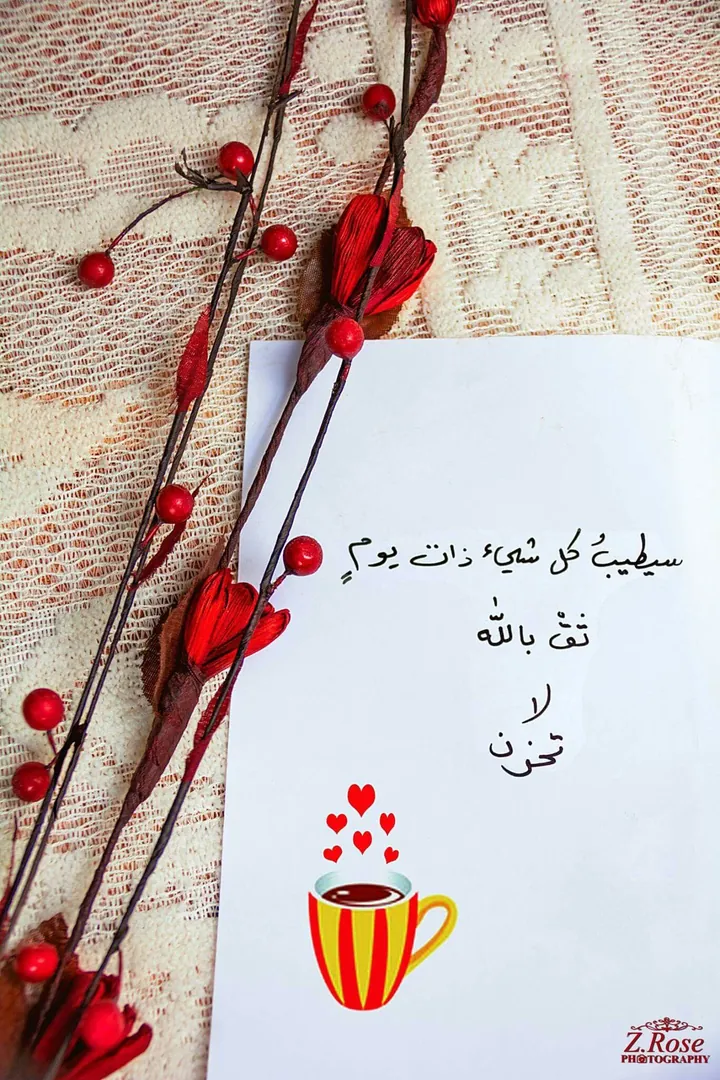 سيطيبُ كل شيء ذات يومٍ
ثقْ باللّٰه
لا
تحزن
Z.Rose
PHOTOGRAPHY